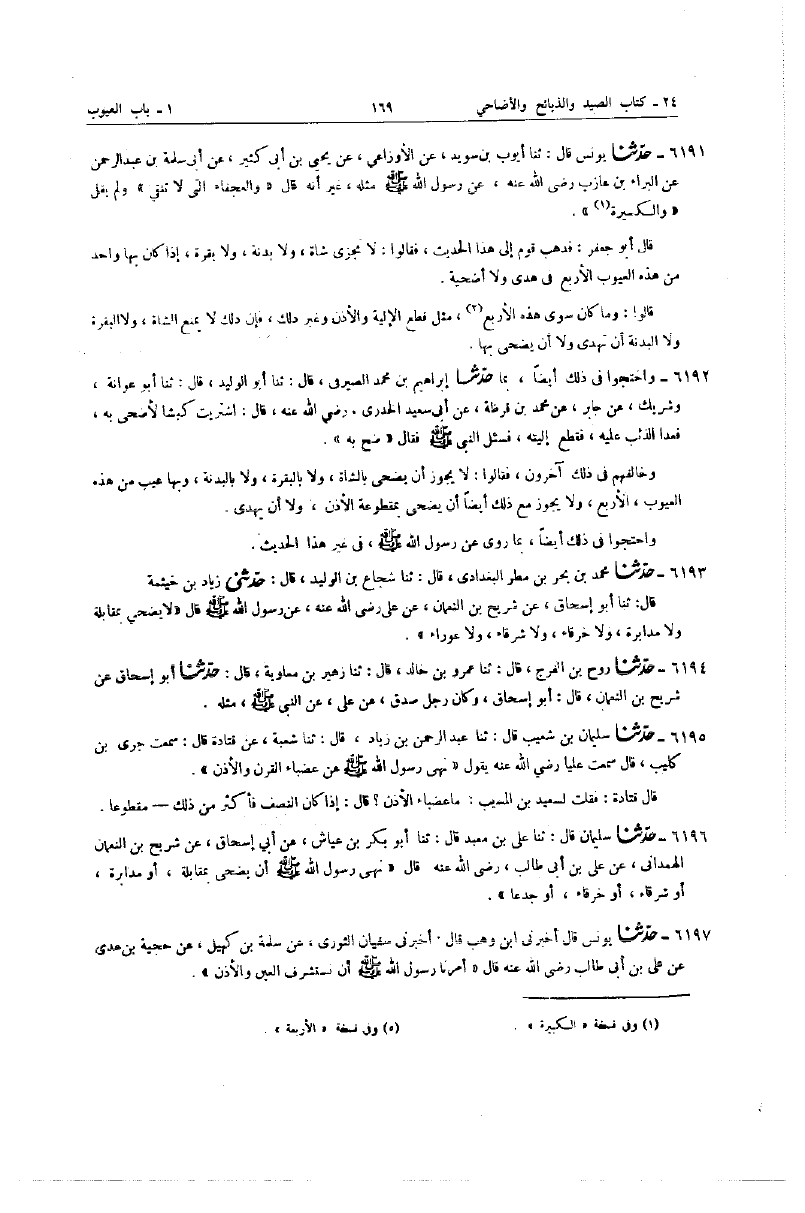 ٢٤ - كتاب الصيد والذبائح والأضاحي ١٦٩ ١ - باب العيوب
٦١٩١ - حدثنا يونس قال : ثنا أيوب بن سويد ، عن الأوزاعي ، عن يحيى بن أبى كثير ، عن أبى سلمة بن عبدالرحمن
عن البراء بن عازب رضى الله عنه ، عن رسول الله ﷺ مثله ، غير أنه قال « والعجفاء التى لا تنقي » ولم يقل
« والكسيرة(١) » .
قال أبو جعفر : فذهب قوم إلى هذا الحديث ، فقالوا : لا تجزى شاة ، ولا بدنة ، ولا بقرة ، إذا كان بها واحد
من هذه العيوب الأربع فى هدى ولا أضحية .
قالوا : وما كان سوى هذه الأربع(٢) ، مثل قطع الإلية والأذن وغير ذلك ، فإن ذلك لا يمنع الشاة ، ولا البقرة
ولا البدنة أن تهدى ولا أن يضحى بها .
٦١٩٢ - واحتجوا فى ذلك أيضاً ، بما حدثنا إبراهيم بن محمد الصيرفى ، قال : ثنا أبو الوليد ، قال : ثنا أبو عوانة ،
وشريك ، عن جابر ، عن محمد بن قرظة ، عن أبى سعيد الخدرى ، رضي الله عنه ، قال : اشتريت كبشا لأضحى به ،
فعدا الذئب عليه ، فقطع إليته ، فسئل النبى ﷺ فقال « ضح به » .
وخالفهم فى ذلك آخرون ، فقالوا : لا يجوز أن يضحى بالشاة ، ولا بالبقرة ، ولا بالبدنة ، وبها عيب من هذه
العيوب ، الأربع ، ولا يجوز مع ذلك أيضاً أن يضحى بمقطوعة الأذن ، ولا أن يهدى .
واحتجوا فى ذلك أيضاً ، بما روى عن رسول الله ﷺ ، فى غير هذا الحديث .
٦١٩٣ - حدثنا محمد بن بحر بن مطر البغدادى ، قال : ثنا شجاع بن الوليد ، قال : حدثنى زياد بن خيثمة
قال: ثنا أبو إسحاق ، عن شريح بن النعمان ، عن على رضى الله عنه ، عن رسول الله ﷺ قال « لا يضحي بمقابلة
ولا مدابرة ، ولا خرقاء ، ولا شرقاء ، ولا عوراء » .
٦١٩٤ - حدثنا روح بن الفرج ، قال : ثنا عمرو بن خالد ، قال : ثنا زهير بن معاوية ، قال : حدثنا أبو إسحاق عن
شريح بن النعمان ، قال : أبو إسحاق ، وكان رجل صدق ، عن على ، عن النبى ﷺ ، مثله .
٦١٩٥ - حدثنا سليمان بن شعيب قال : ثنا عبد الرحمن بن زياد ، قال : ثنا شعبة ، عن قتادة قال : سمعت جرى بن
كليب ، قال سمعت عليا رضي الله عنه يقول « نهى رسول الله ﷺ عن عضباء القرن والأذن » .
قال قتادة : فقلت لسعيد بن المسيب : ما عضباء الأذن ؟ قال : إذا كان النصف فأكثر من ذلك — مقطوعا .
٦١٩٦ - حدثنا سليمان قال : ثنا على بن معبد قال : ثنا أبو بكر بن عياش ، عن أبي إسحاق ، عن شريح بن النعمان
الهمدانى ، عن على بن أبى طالب ، رضى الله عنه قال « نهى رسول الله ﷺ أن يضحى بمقابلة ، أو مدابرة ،
أو شرقاء ، أو خرقاء ، أو جدعا » .
٦١٩٧ - حدثنا يونس قال أخبرنى ابن وهب قال : أخبرنى سفيان الثورى ، عن سلمة بن كهيل ، عن حجية بن عدى
عن على بن أبى طالب رضى الله عنه قال « أمرنا رسول الله ﷺ أن نستشرف العين والأذن » .
(١) وفى نسخة « الكبيرة » . (٥) وفى نسخة « الأربعة » .